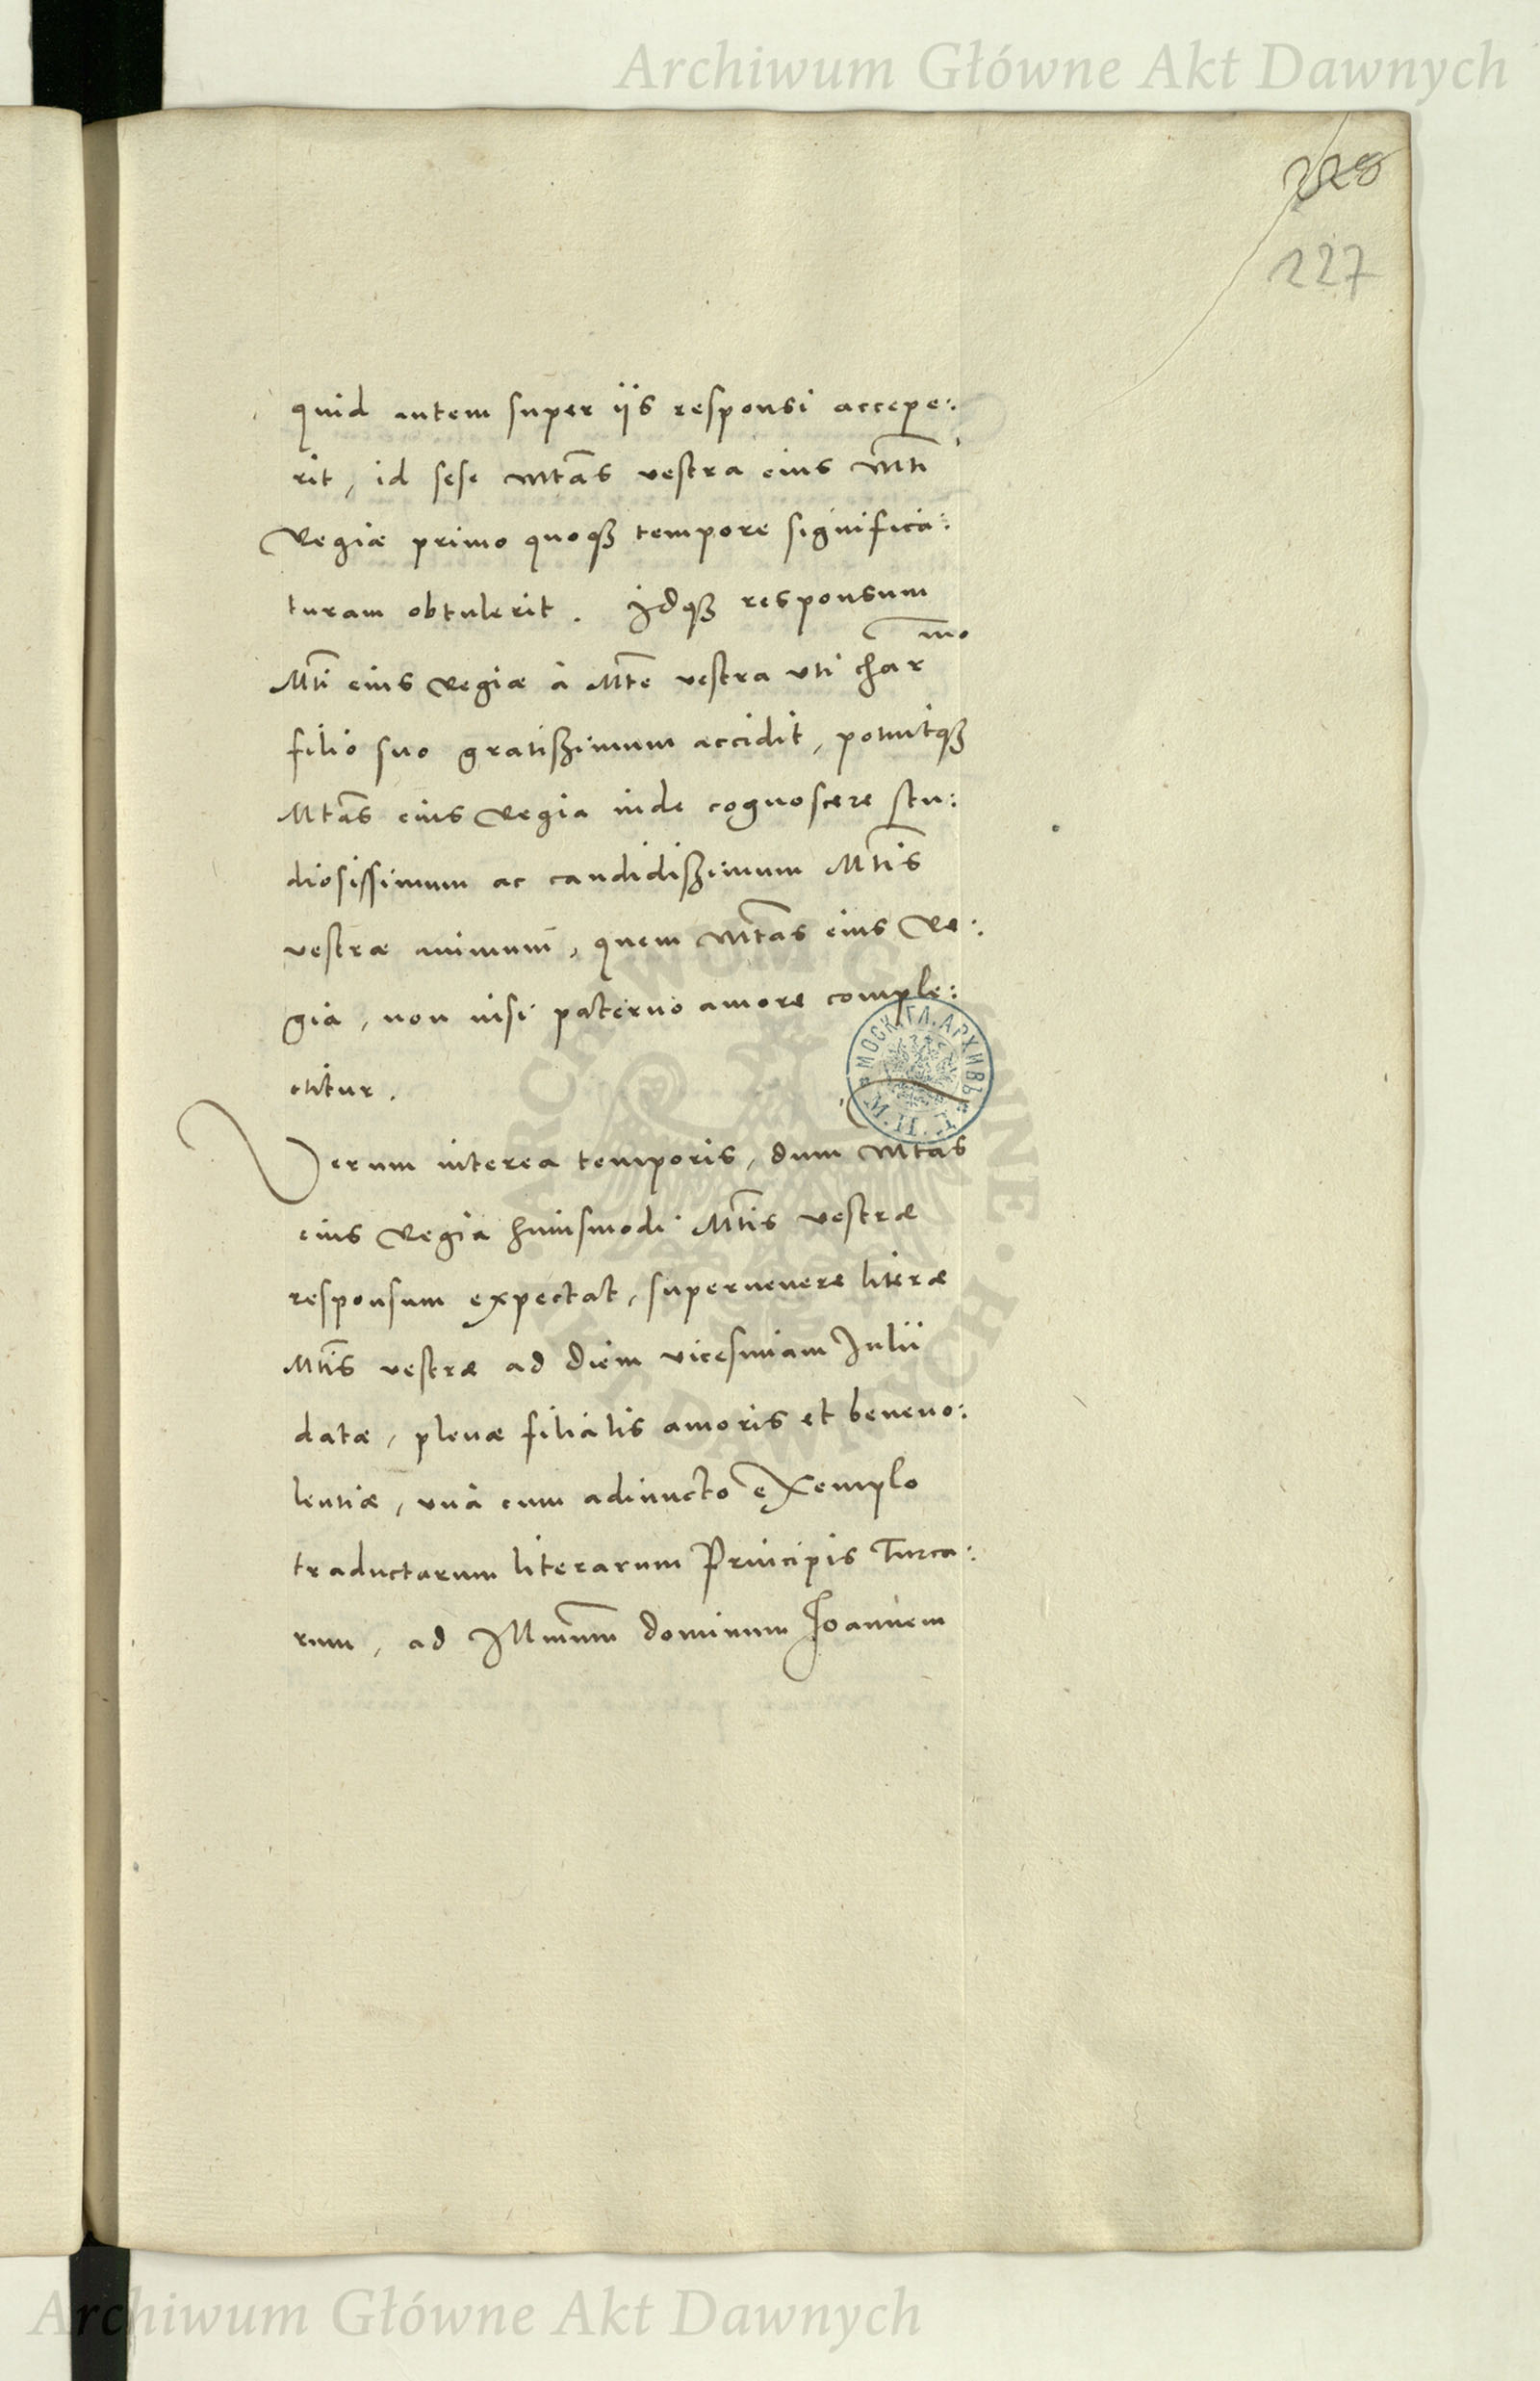 Archiwum Główne Akt Dawnych
228
227
quid autem super iis responsi accepe:
rit, id sese Mtas vestra eius Mti
Regiæ primo quoq3 tempore significa:
turam obtulerit. Idq3 responsum
Mti eius Regiæ à Mte vestra uti char mo
filio suo gratißimum accidit, potuitq3
Mtas eius Regia inde cognoscere stu:
diosissimum ac candidißimum Mtis
vestræ animum, quem Mtas eius Re:
gia, non nisi paterno amore comple:
ctitur.
Verum interea temporis, dum Mtas
eius Regia huiusmodi Mtis vestræ
responsum expectat, supervenere literæ
Mtis vestræ ad diem vicesimam Julii
datæ, plenæ filialis amoris et benevo:
lentiæ, unà cum adiuncto exemplo
traductarum literarum Principis Turca:
rum, ad Illmum dominum Joannem
МОСК. ГЛ. АРХИВЪ
М. И. Д.
ARCHIWUM GŁÓWNE
AKT DAWNYCH
Archiwum Główne Akt Dawnych